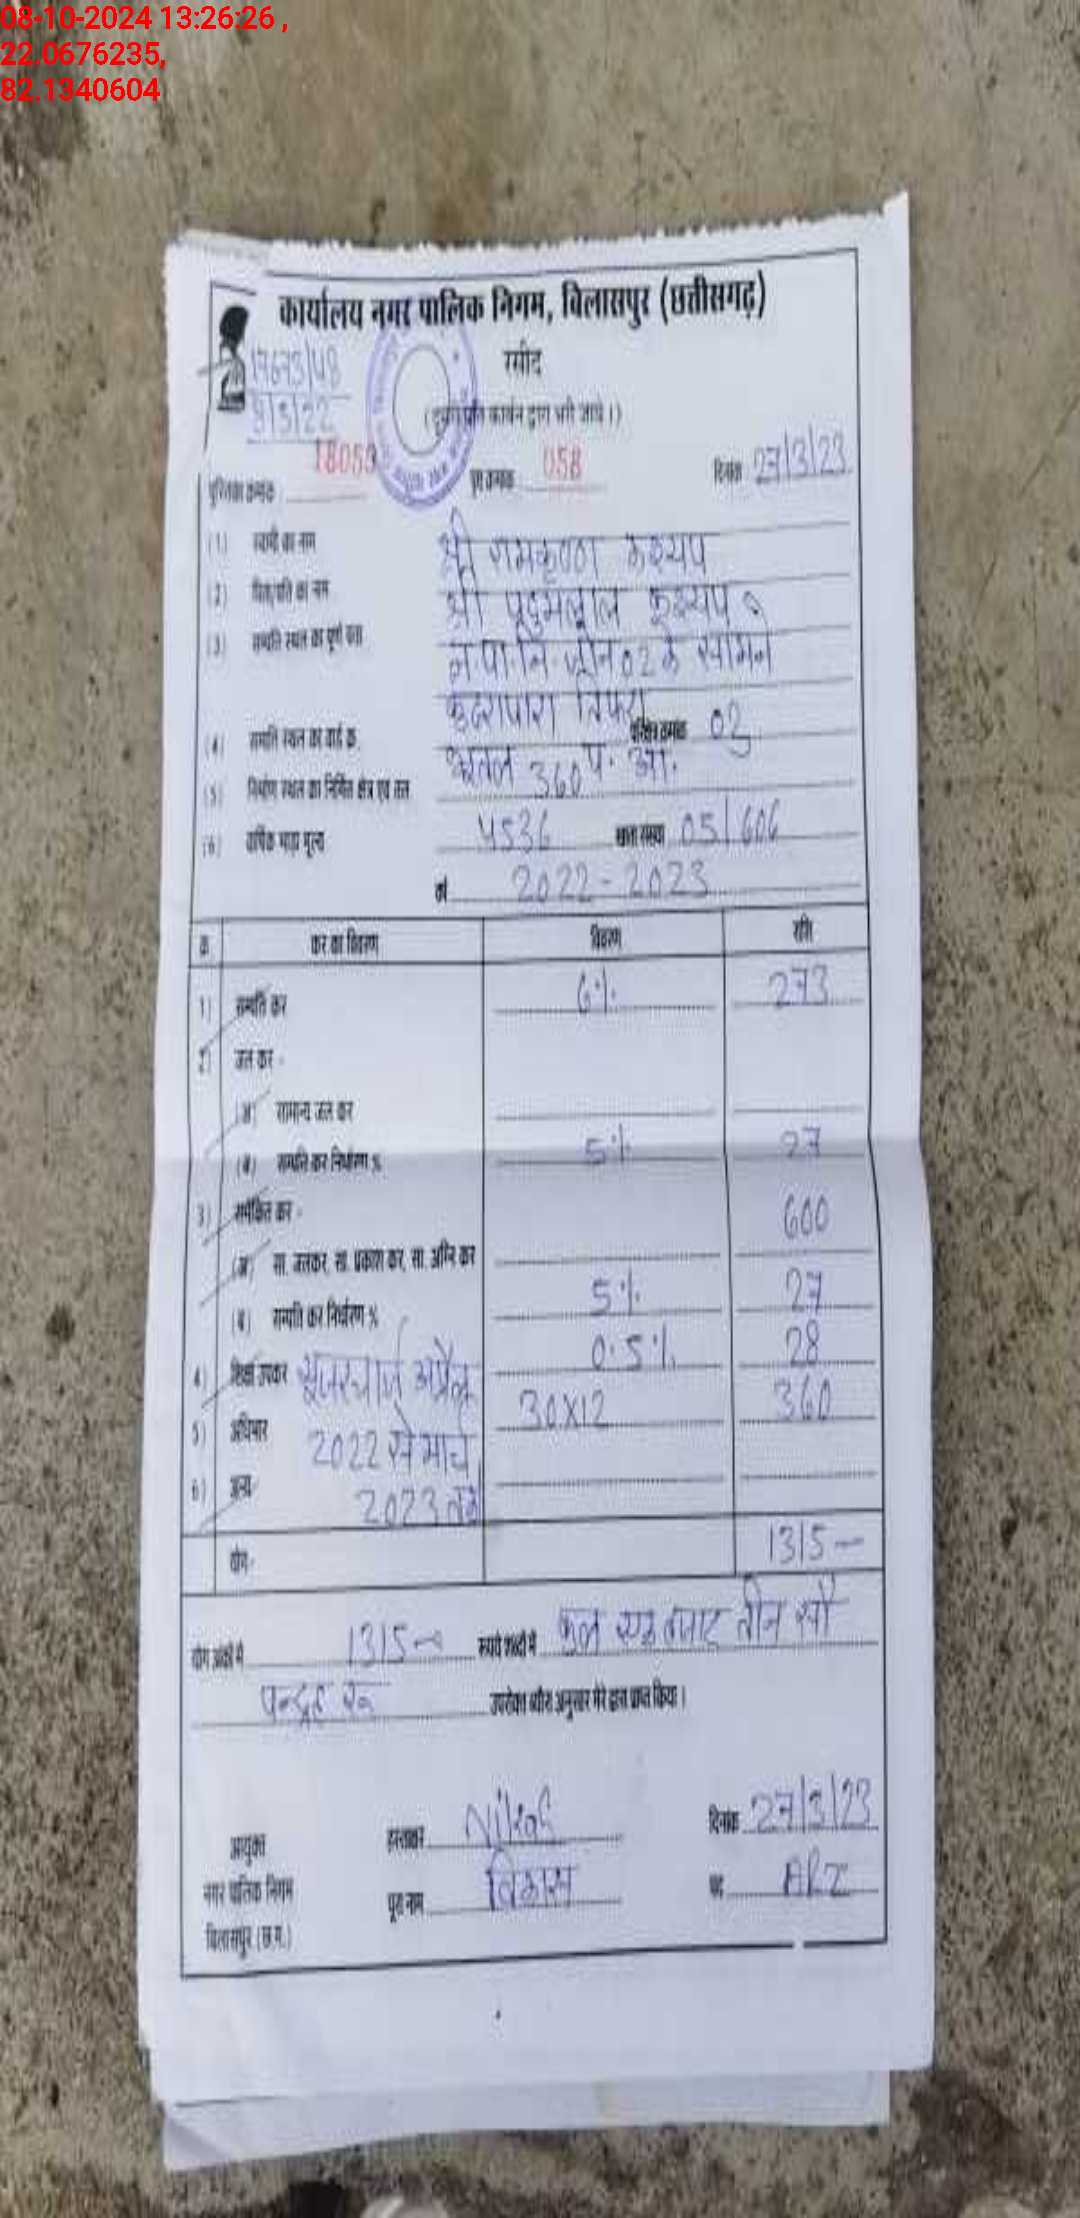 08-10-2024 13:26:26 ,
22.0676235,
82.1340604
कार्यालय नगर पालिक निगम, बिलासपुर (छत्तीसगढ़)
रसीद
17673/48
3/5/22
(दूसरी प्रति कार्बन द्वारा भरी जावे।)
पुस्तिका क्रमांक 18053 पृष्ठ क्रमांक 058 दिनांक 27/3/23
(1) स्वामी का नाम श्री रामकृष्ण कश्यप
(2) पिता/पति का नाम श्री कश्यप
(3) सम्पत्ति स्थल का पूर्ण पता न.पा.नि. जोन 02 के सामने
कुदरापारा तिफरा
(4) सम्पत्ति स्थल का वार्ड क्र. परिक्षेत्र क्रमांक 02
(5) निर्माण स्थल का निर्मित क्षेत्र एवं तल भूतल 360 प. आ.
(6) वार्षिक भाड़ा मूल्य 4536 खाता संख्या 05/606
वर्ष 2022-2023
क्र. कर का विवरण विवरण राशि
1) सम्पत्ति कर 6% 273
2) जल कर -
(अ) सामान्य जल कर
(ब) सम्पत्ति कर निर्धारण % 5% 27
3) समेकित कर - 600
(अ) सा. जलकर, सा. प्रकाश कर, सा. अग्नि कर
(ब) सम्पत्ति कर निर्धारण % 5% 27
4) शिक्षा उपकर 0.5% 28
यूजरचार्ज अप्रैल
5) अधिभार 30X12 360
2022 से मार्च
6) अन्य
2023 तक
योग - 1315
योग अंकों में 1315 रूपये शब्दों में कुल एक हजार तीन सौ
पन्द्रह रू उपरोक्त ब्यौरा अनुसार मेरे द्वारा प्राप्त किया।
आयुक्त हस्ताक्षर दिनांक 27/3/23
नगर पालिक निगम पूरा नाम विकास पद ARI
बिलासपुर (छ.ग.)